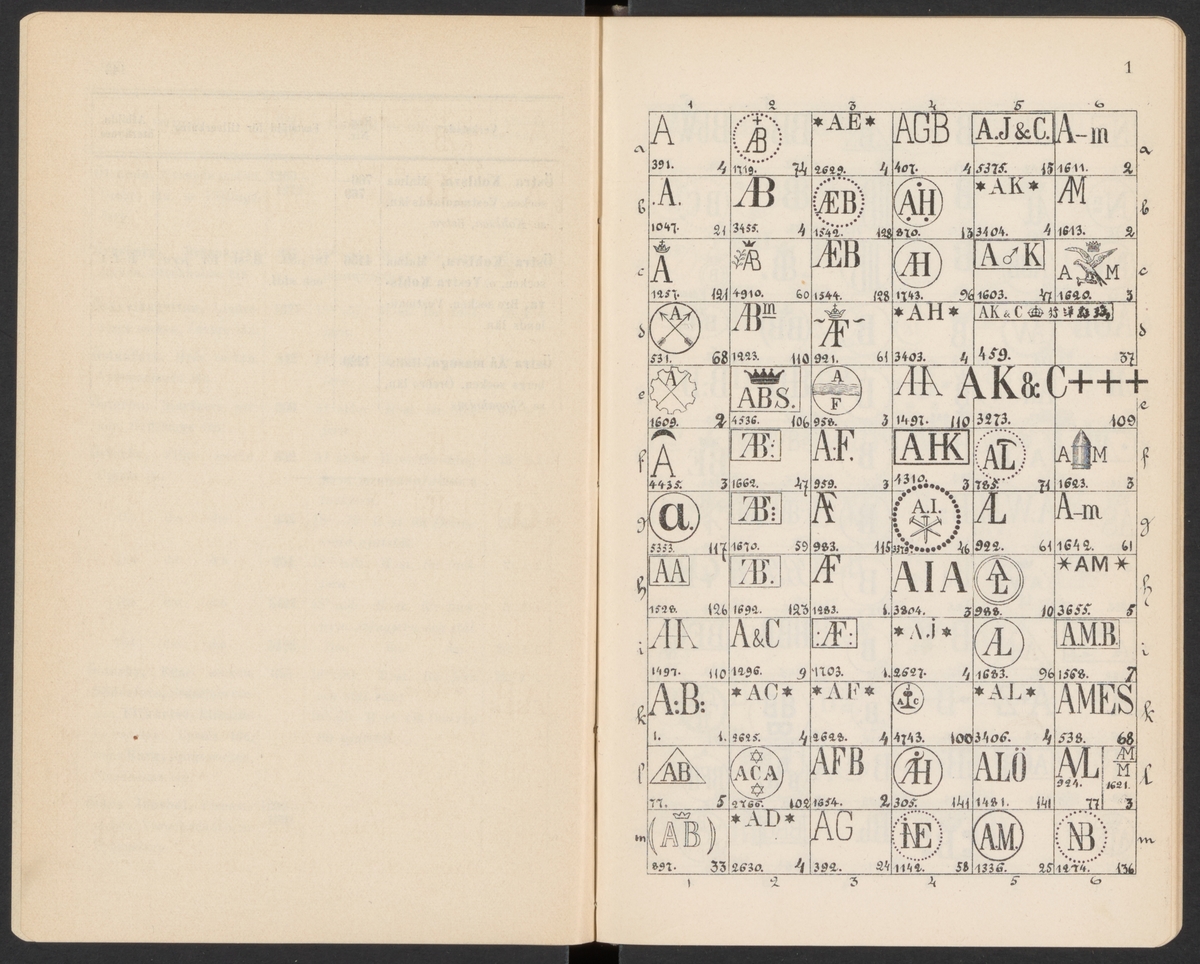 1
1 2 3 4 5 6
a A ÆB *AE* AGB A.J & C. A-m a
391. 4 1719. 74 2629. 4 407. 4 5375. 15 1611. 2
b .A. ÆB ÆB ÅH *AK* AM b
1047. 21 3455. 4 1542. 128 870. 13 3404. 4 1613. 2
c A AB ÆB AH A♂K A M c
1257. 121 4910. 60 1544. 128 1743. 96 1603. 47 1620. 3
d A ÆBm ~ÆF~ *AH* AK & C d
531. 68 1223. 110 921. 61 3403. 4 459. 37
e A ABS. A F AA AK&C+++ e
1609. 2 4536. 106 958. 3 1497. 110 3273. 109
f A ÆB: A.F. AHK AL A M f
4435. 3 1662. 47 959. 3 4310. 3 785. 71 1623. 3
g a. ÆB: AF A.I. AL A-m g
5353. 117 1670. 59 983. 115 46 922. 61 1642. 61
h AA ÆB. ÆF AIA AL *AM* h
1528. 126 1692. 123 1283. 1. 3804. 3 988. 10 3655. 5
i AA A&C :ÆF: *A.j* AL A.M.B. i
1497. 110 1296. 9 1703. 1. 2627. 4 1683. 96 1568. 7
k A:B: *AC* *AF* AC *AL* AMES k
1. 1. 2625. 4 2628. 4 4743. 100 3406. 4 538. 68
l AB ACA AFB AH ALÖ AL AM M l
77. 5 2766. 102 1654. 2 305. 141 1481. 141 924. 77 1621. 3
m (AB) *AD* AG A.M. NB m
897. 33 2630. 4 392. 24 1142. 58 1336. 25 1274. 136
1 2 3 4 5 6